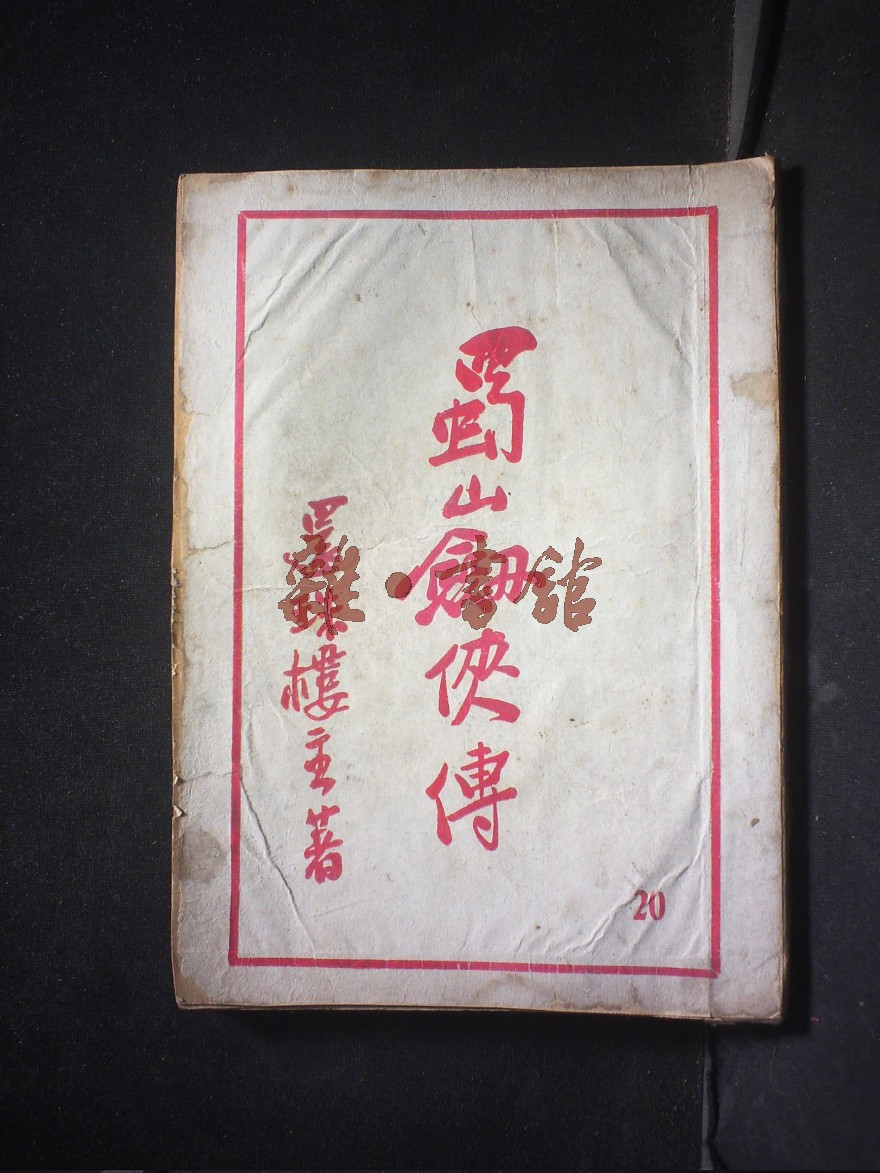 蜀山劍俠傳
還珠樓主著
20
雜·書館